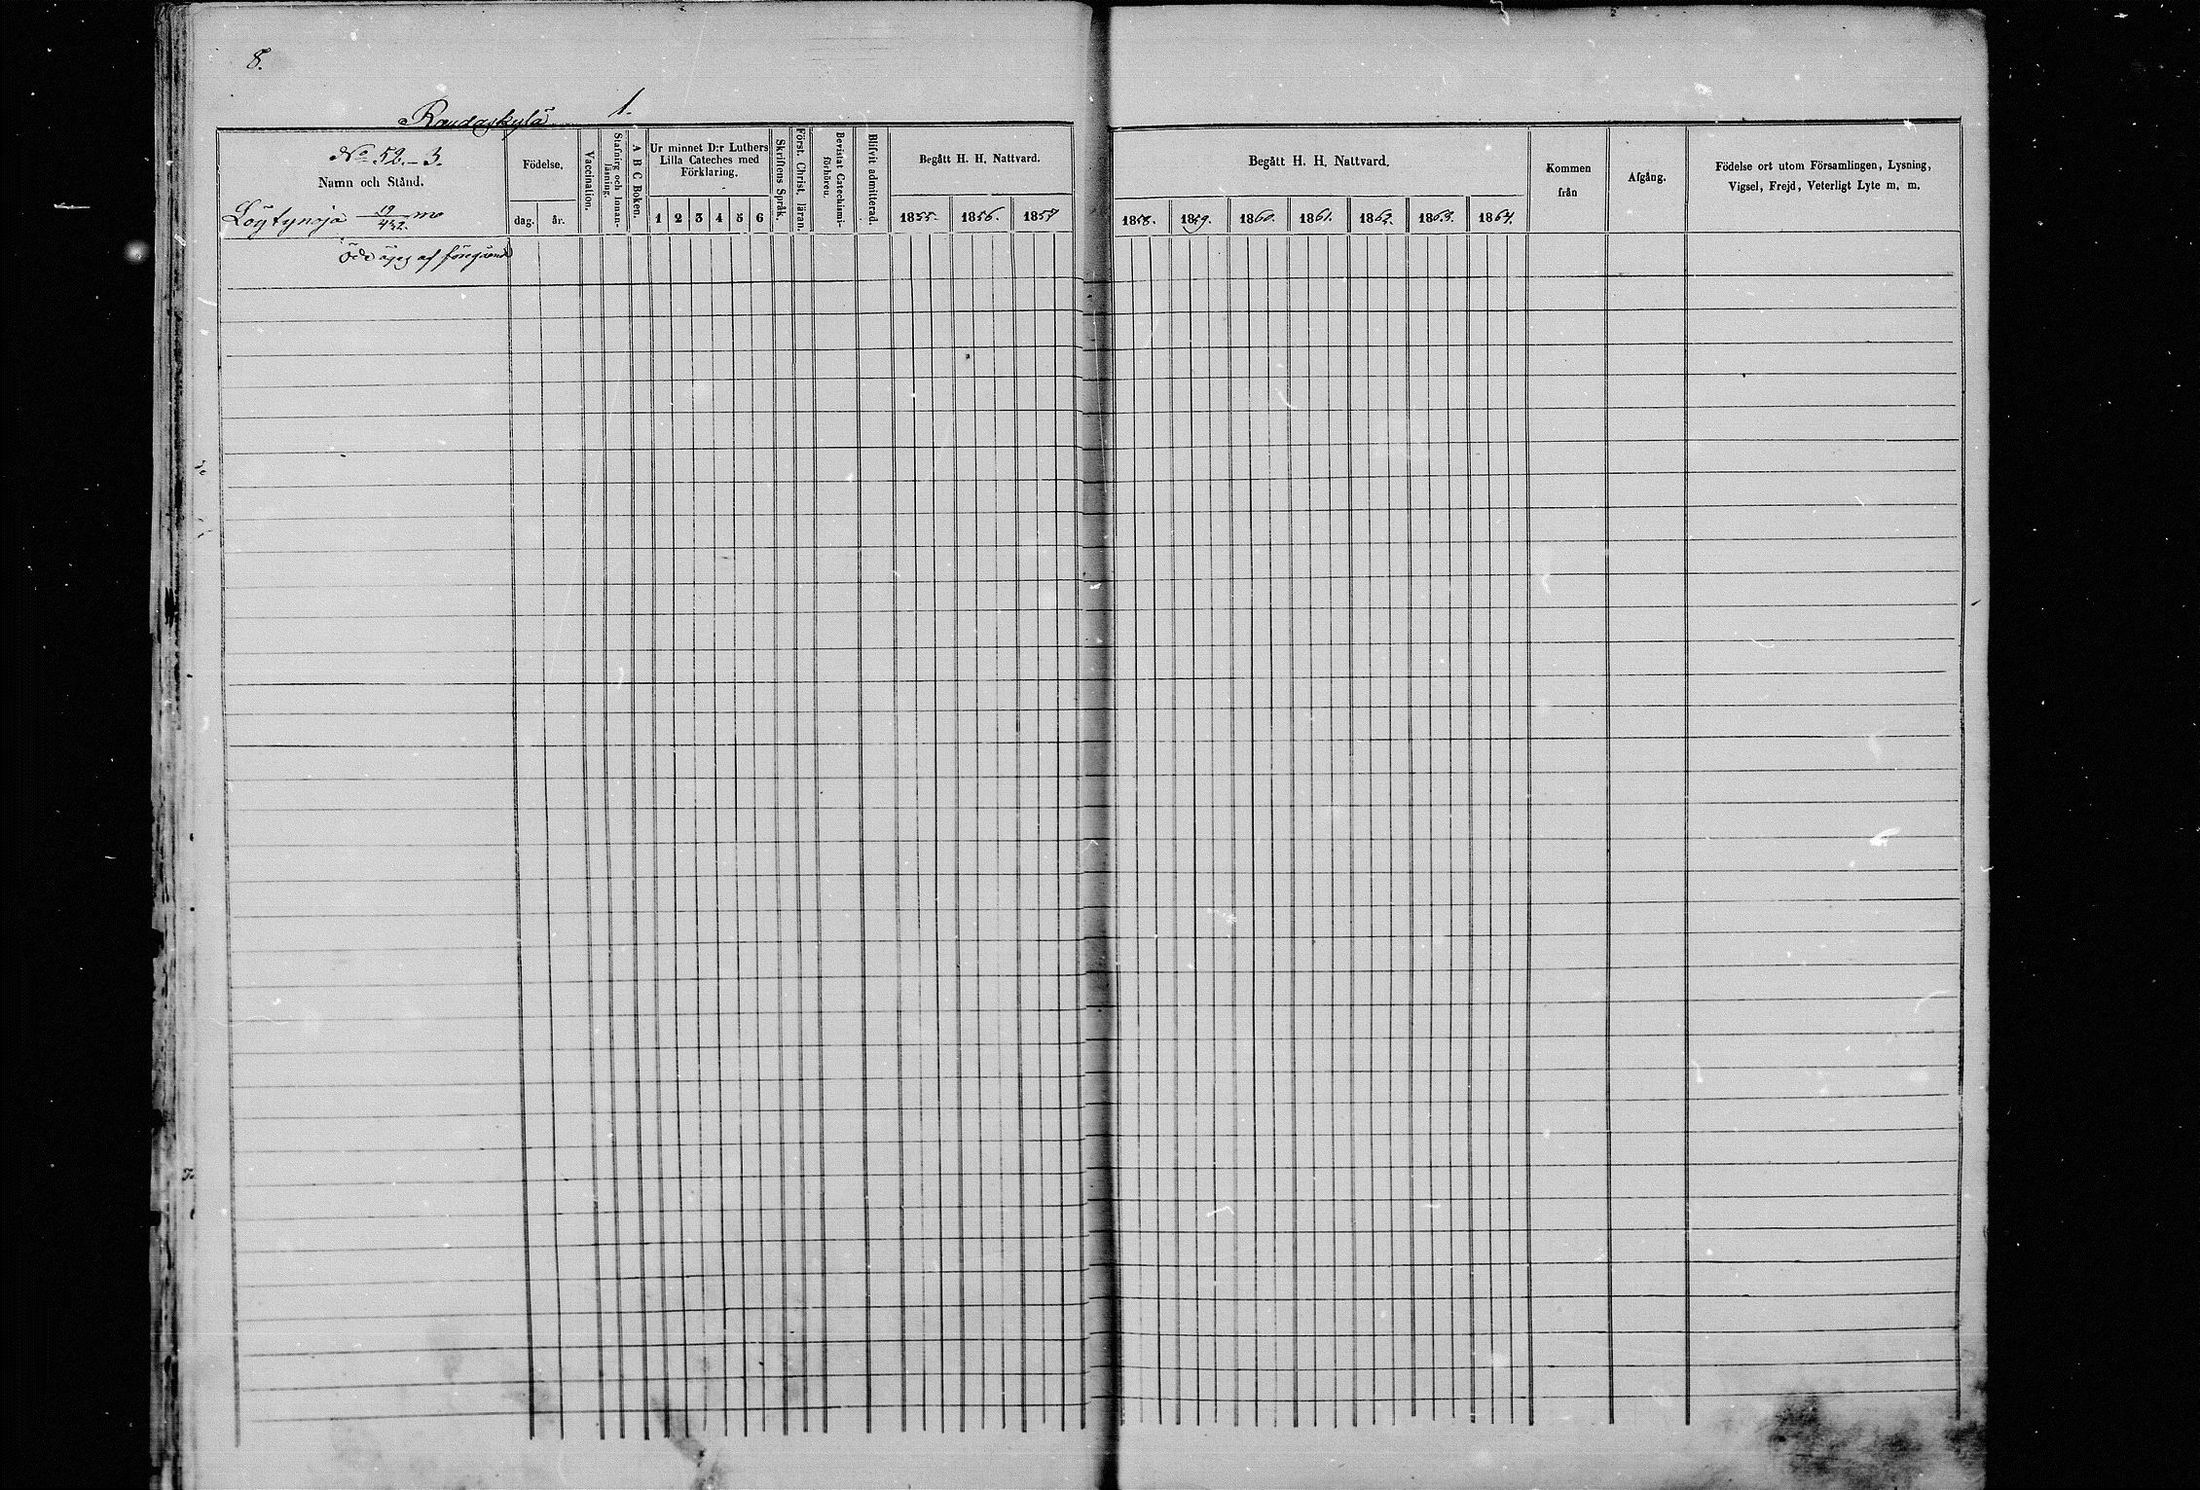 8.
Raudaskylä 1.
No 52.-3.
Namn och Stånd.
Löytynoja 19/432. m
Öde äges af föregående
Födelse.
dag. år.
Vaccination.
Stafning och Innan-
läsning.
A B C Boken.
Ur minnet D:r Luthers
Lilla Cateches med
Förklaring.
1 2 3 4 5 6
Skriftens Språk.
Först. Christ. läran.
Bevistat Catechismi-
förhören.
Blifvit admitterad.
Begått H. H. Nattvard.
1855. 1856. 1857
Begått H. H. Nattvard.
1858. 1859. 1860. 1861. 1862. 1863. 1864.
Kommen
från
Afgång.
Födelse ort utom Församlingen, Lysning,
Vigsel, Frejd, Veterligt Lyte m. m.